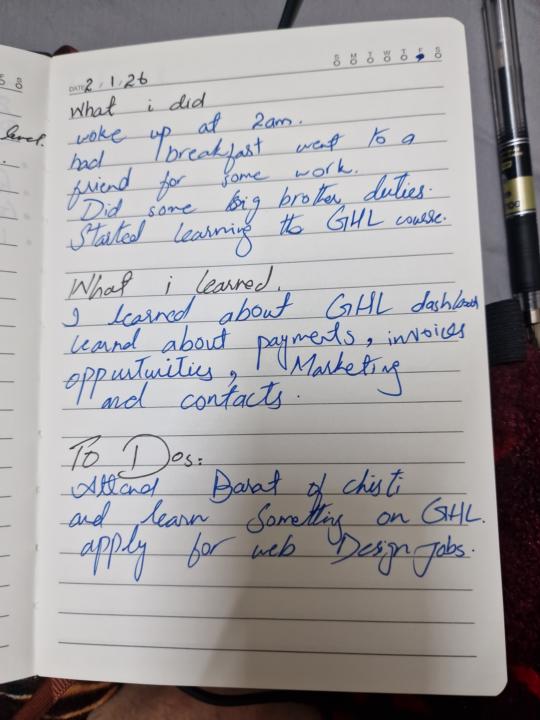 S M T W T F S
DATE 2.1.26
What i did
woke up at 2am.
had breakfast went to a
friend for some work.
Did some big brother duties.
Started learning the GHL course.
What i learned.
I learned about GHL dashboard
learnd about payments, invoices
oppurtunities, Marketing
and contacts.
To Dos:
Attend Barat of chisti
and learn something on GHL.
apply for web Design jobs.
level.